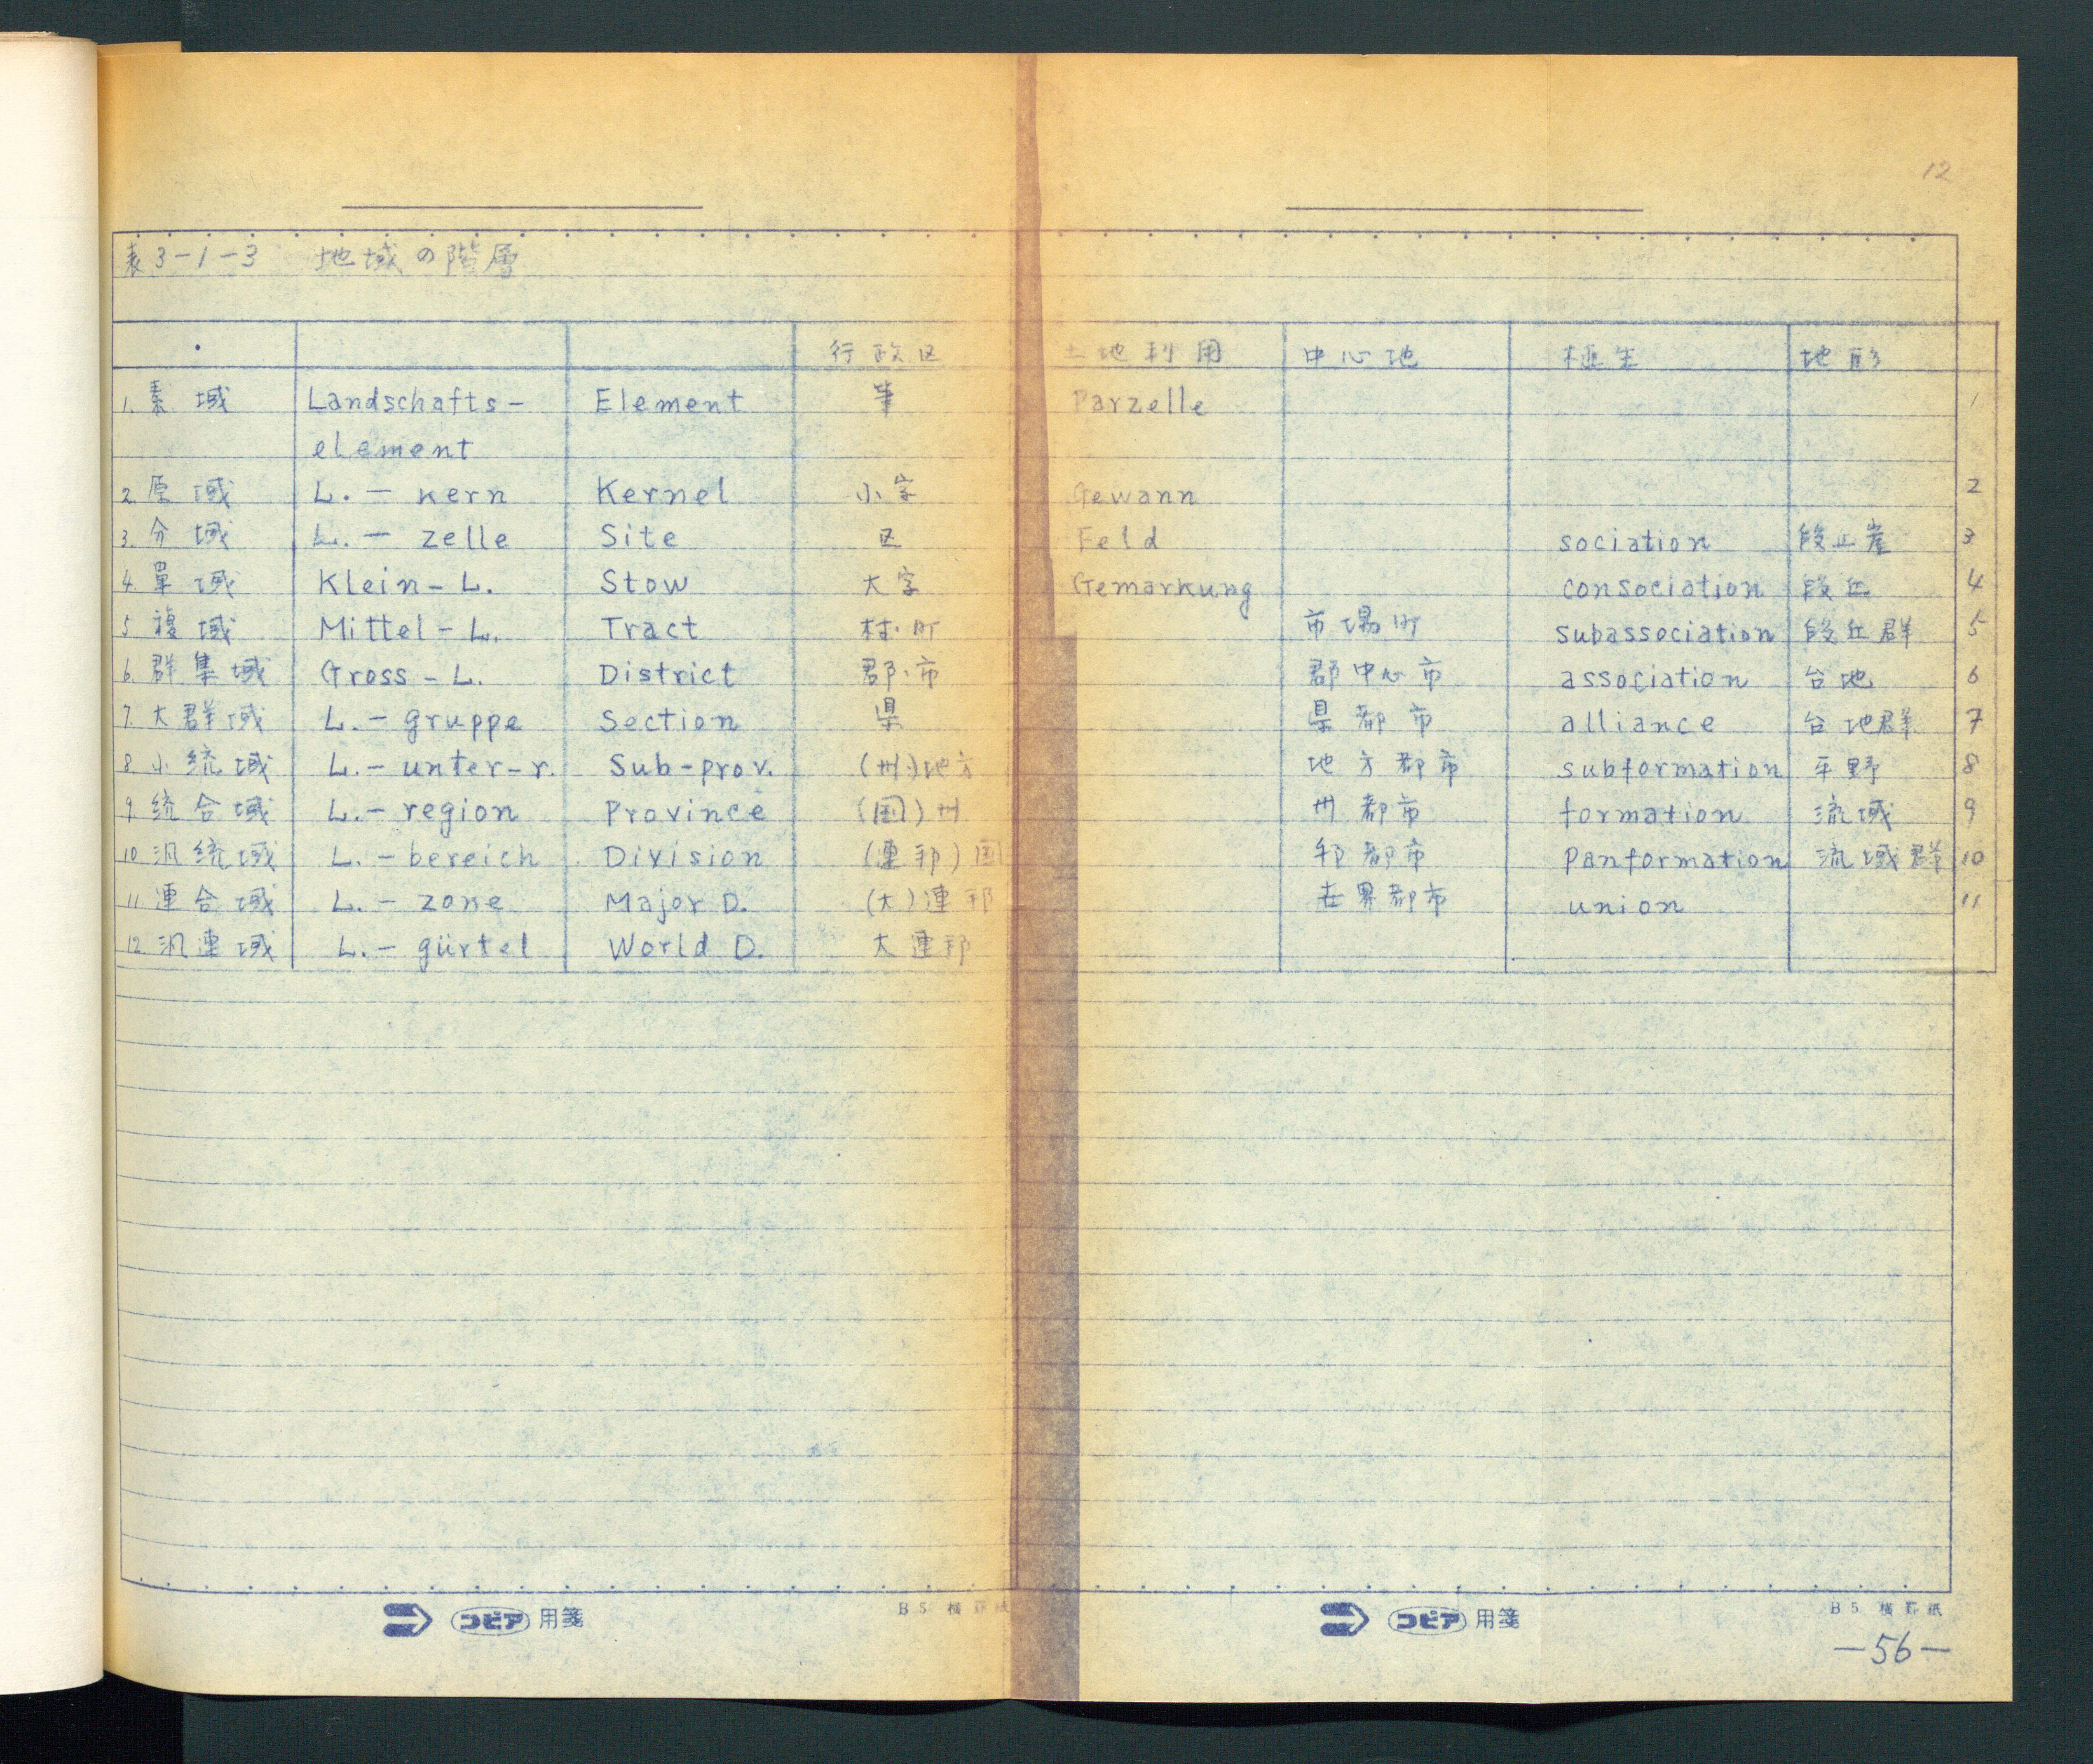 12
表3-1-3 地域の階層
行政区 土地利用 中心地 植生 地形
1. 素域 Landschafts- Element 筆 Parzelle 1
element
2. 原域 L.- kern Kernel 小字 Gewann 2
3. 分域 L.- zelle Site 区 Feld sociation 段丘崖 3
4. 単域 Klein-L. Stow 大字 Gemarkung consociation 段丘 4
5 複域 Mittel-L. Tract 村・町 市場町 subassociation 段丘群 5
6. 群集域 Gross-L. District 郡・市 郡中心市 association 台地 6
7. 大群域 L.-gruppe Section 県 県都市 alliance 台地群 7
8. 小統域 L.-unter-r. Sub-prov. (州)地方 地方都市 subformation 平野 8
9. 統合域 L.-region Province (国)州 州都市 formation 流域 9
10 汎統域 L.-bereich Division (連邦)国 邦都市 Panformation 流域群 10
11 連合域 L.-zone Major D. (大)連邦 世界都市 union 11
12. 汎連域 L.-gürtel World D. 大連邦
コピア用箋 B5 横罫紙
コピア用箋 B5 横罫紙
—56—